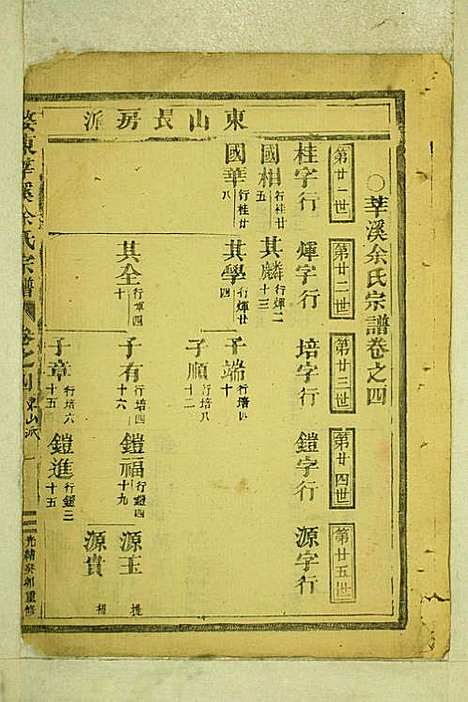 ○莘溪余氏宗譜卷之四
東山長房派
第廿一世
第廿二世
第廿三世
第廿四世
第廿五世
桂字行
煇字行
培字行
鎧字行
源字行
國相 行桂廿五
其麟 行煇二十三
國華 行桂廿八
其學 行煇廿四
子端 行培四十
子順 行培八十二
其全 行章四十
子有 行培四十六
鎧福 行鎧四十九
源主
子章 行培六十五
鎧進 行鎧二十五
源貴
婺東莘溪余氏宗譜
卷之四
東山派
一
光緒癸卯重修